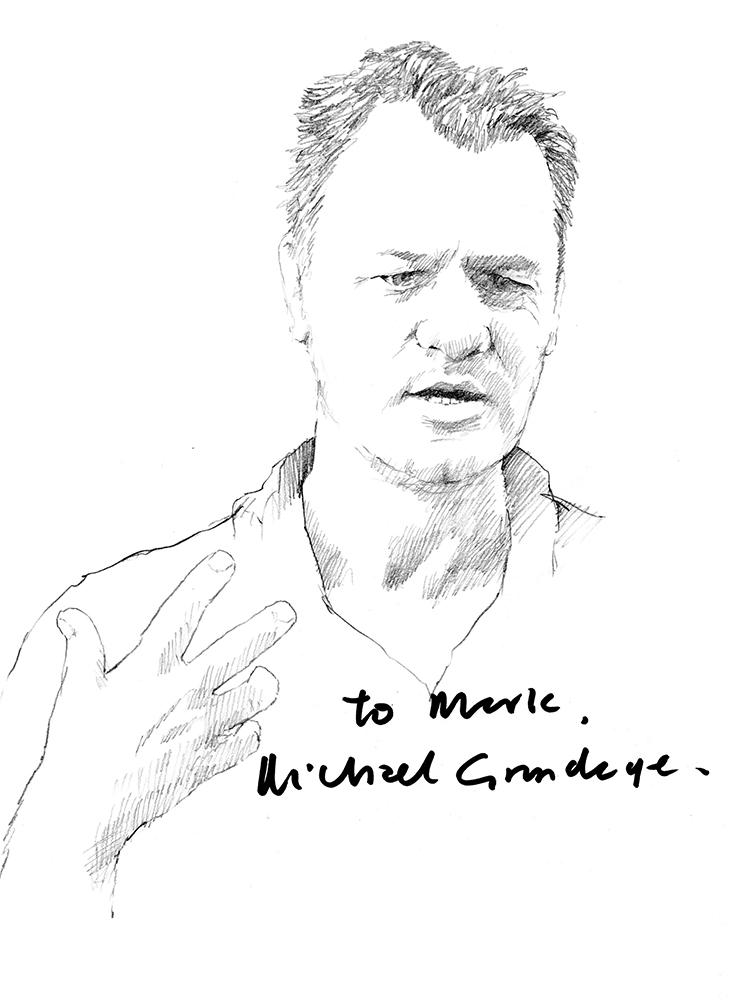 to Mark.
Michael Grandage.